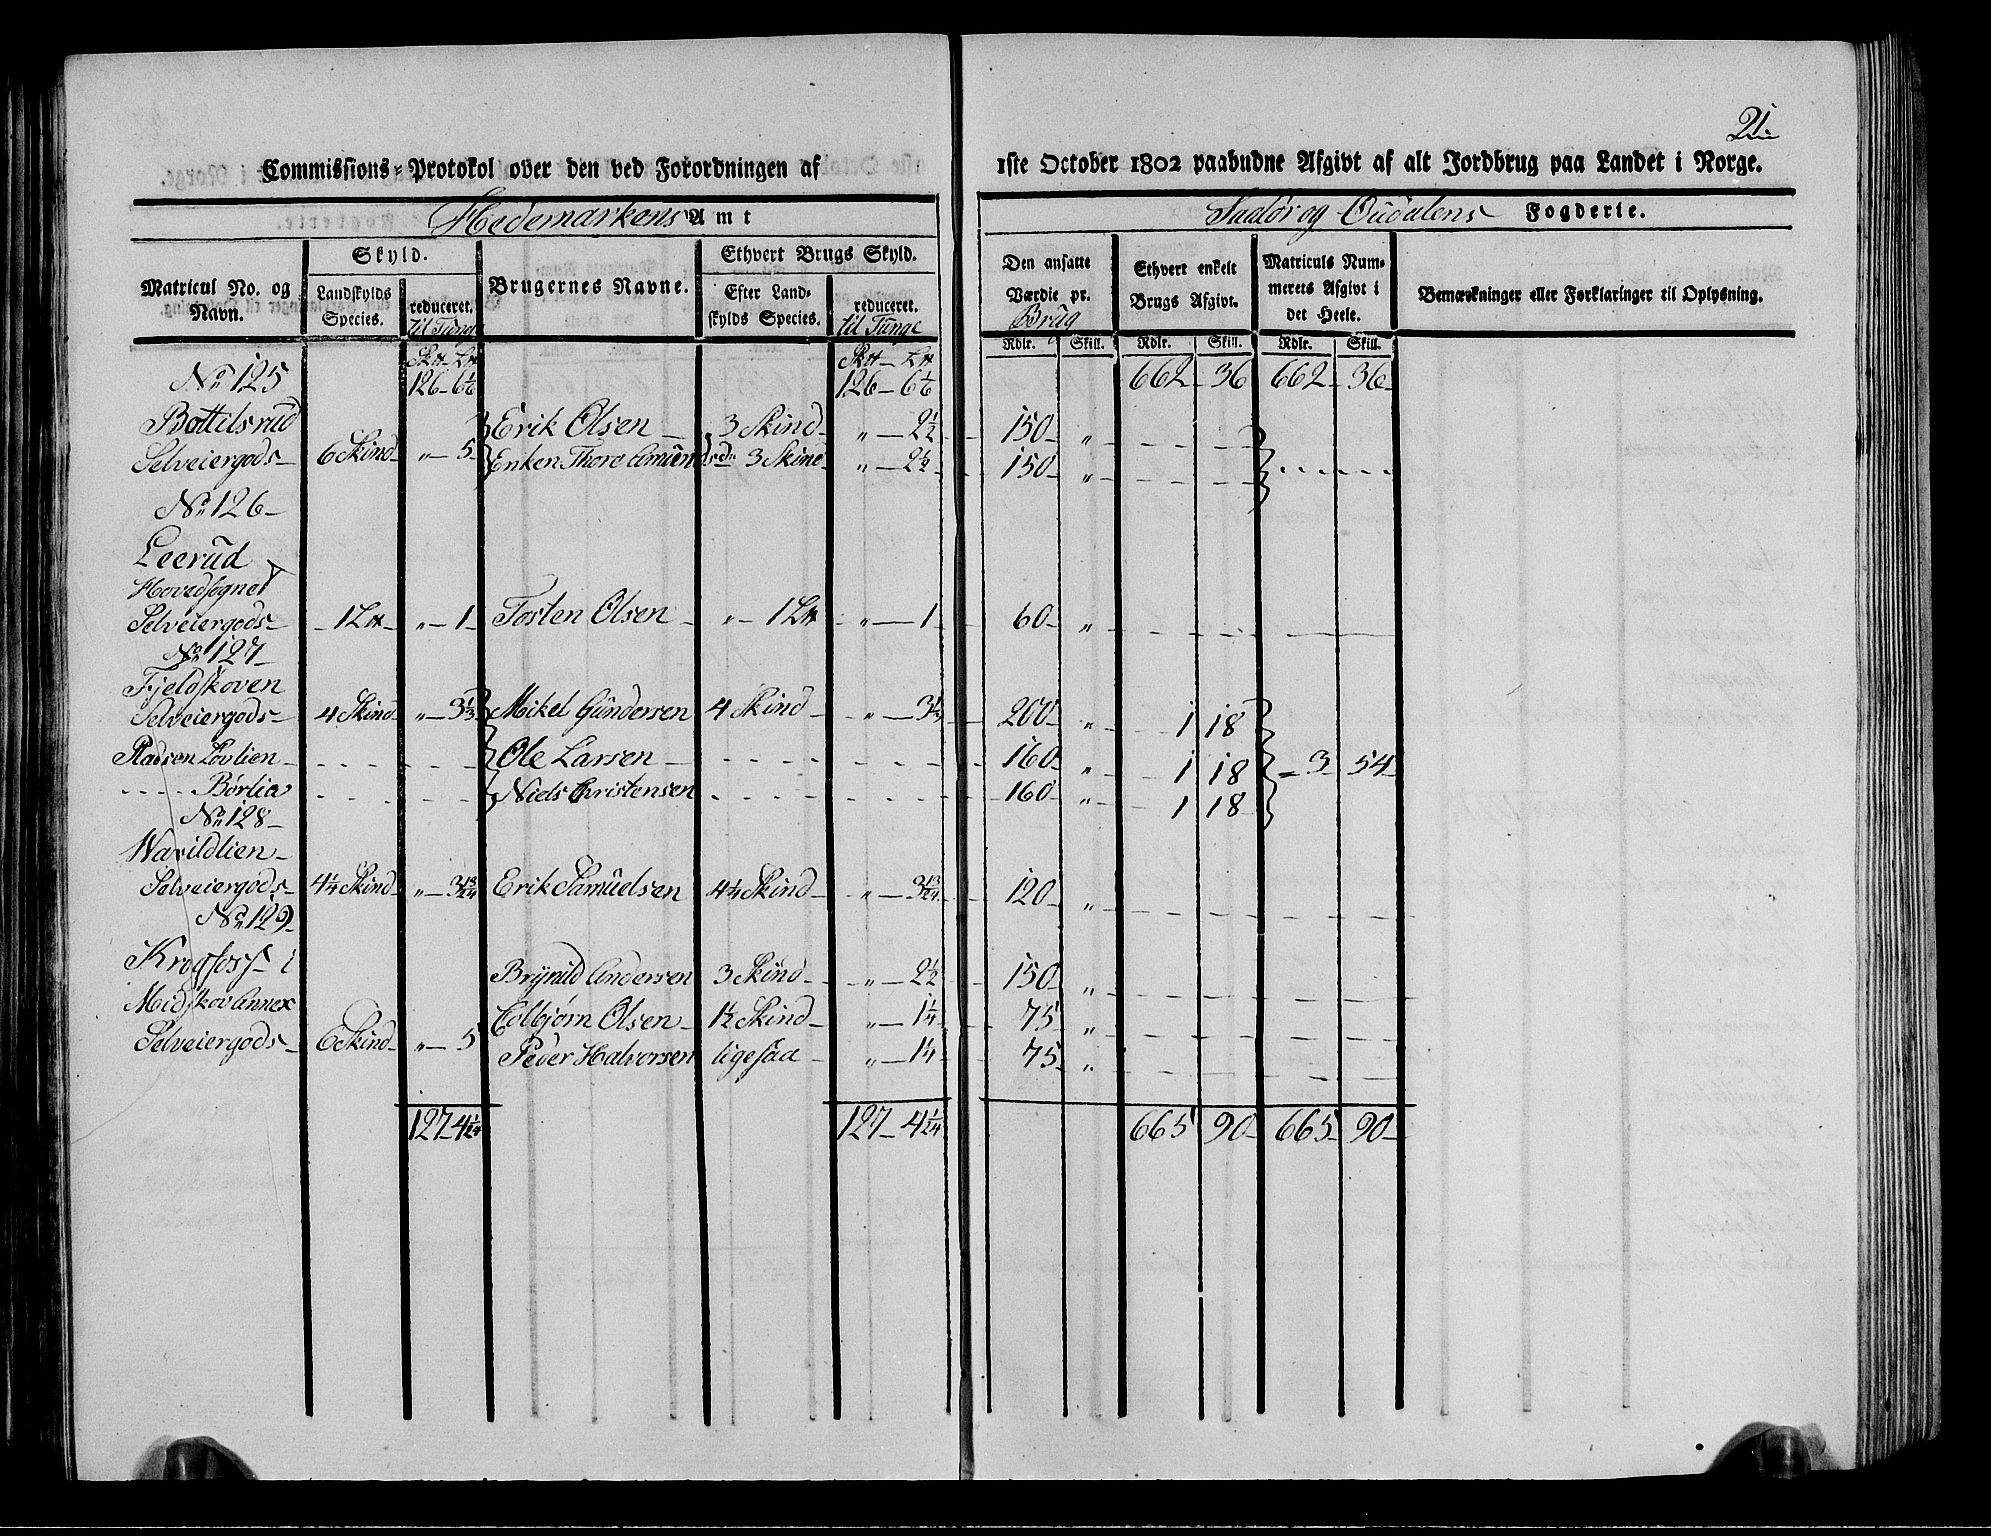 21.
Commissions-Protokol over den ved Forordningen af 1ste October 1802 paabudne Afgivt af alt Jordbrug paa Landet i Norge.
Hedemarkens Amt Soløer og Oudalens Fogderie.
Matricul No. og Navn. Skyld. Landskylds Species. reduceret. til Tunge Brugernes Navne. Ethvert Brugs Skyld. Efter Landskylds Species. reduceret. til Tunge Den ansatte Værdie pr. Brug Ethvert enkelt Brugs Afgivt. Matriculs Nummerets Afgivt i det Heele. Bemærkninger eller Forklaringer til Oplysning.
Rdlr. Skill. Rdlr. Skill. Rdlr. Skill.
No 125 126 - 6 1/6 126 - 6 1/6 662 - 36 662 - 36
Bottilsrud Erik Olsen 3 Skind „ - 2 1/2 150 „
Selveiergods 6 Skind „ - 5 Enken Thore Amundsdr 3 Skind „ - 2 1/2 150 „
No 126
Leerud
Hovedsognet
Selveiergods 1 L℔ „ - 1 Tosten Olsen „ 1 L℔ „ - 1 60 „
No 127
Fjeldskoven
Selveiergods 4 Skind „ - 3 1/3 Mikel Gundersen 4 Skind „ - 3 1/3 200 „ 1 18
Pladsen Løvlien Ole Larsen 160 „ 1 18 3 54
Børlia Niels Christensen 160 „ 1 18
No 128
Warildlien
Selveiergods 4 1/4 Skind „ - 3 13/24 Erik Samuelsen 4 1/4 Skind „ - 3 13/24 120 „
No 129
Krogfoss i Brynild Andersen 3 Skind „ - 2 1/2 150 „
Midskov Annex Colbjørn Olsen 1 1/2 Skind „ - 1 1/4 75 „
Selveiergods 6 Skind „ - 5 Peder Halvorsen ligesaa „ - 1 1/4 75 „
127 - 4 1/24 127 - 4 1/24 665 90 665 90